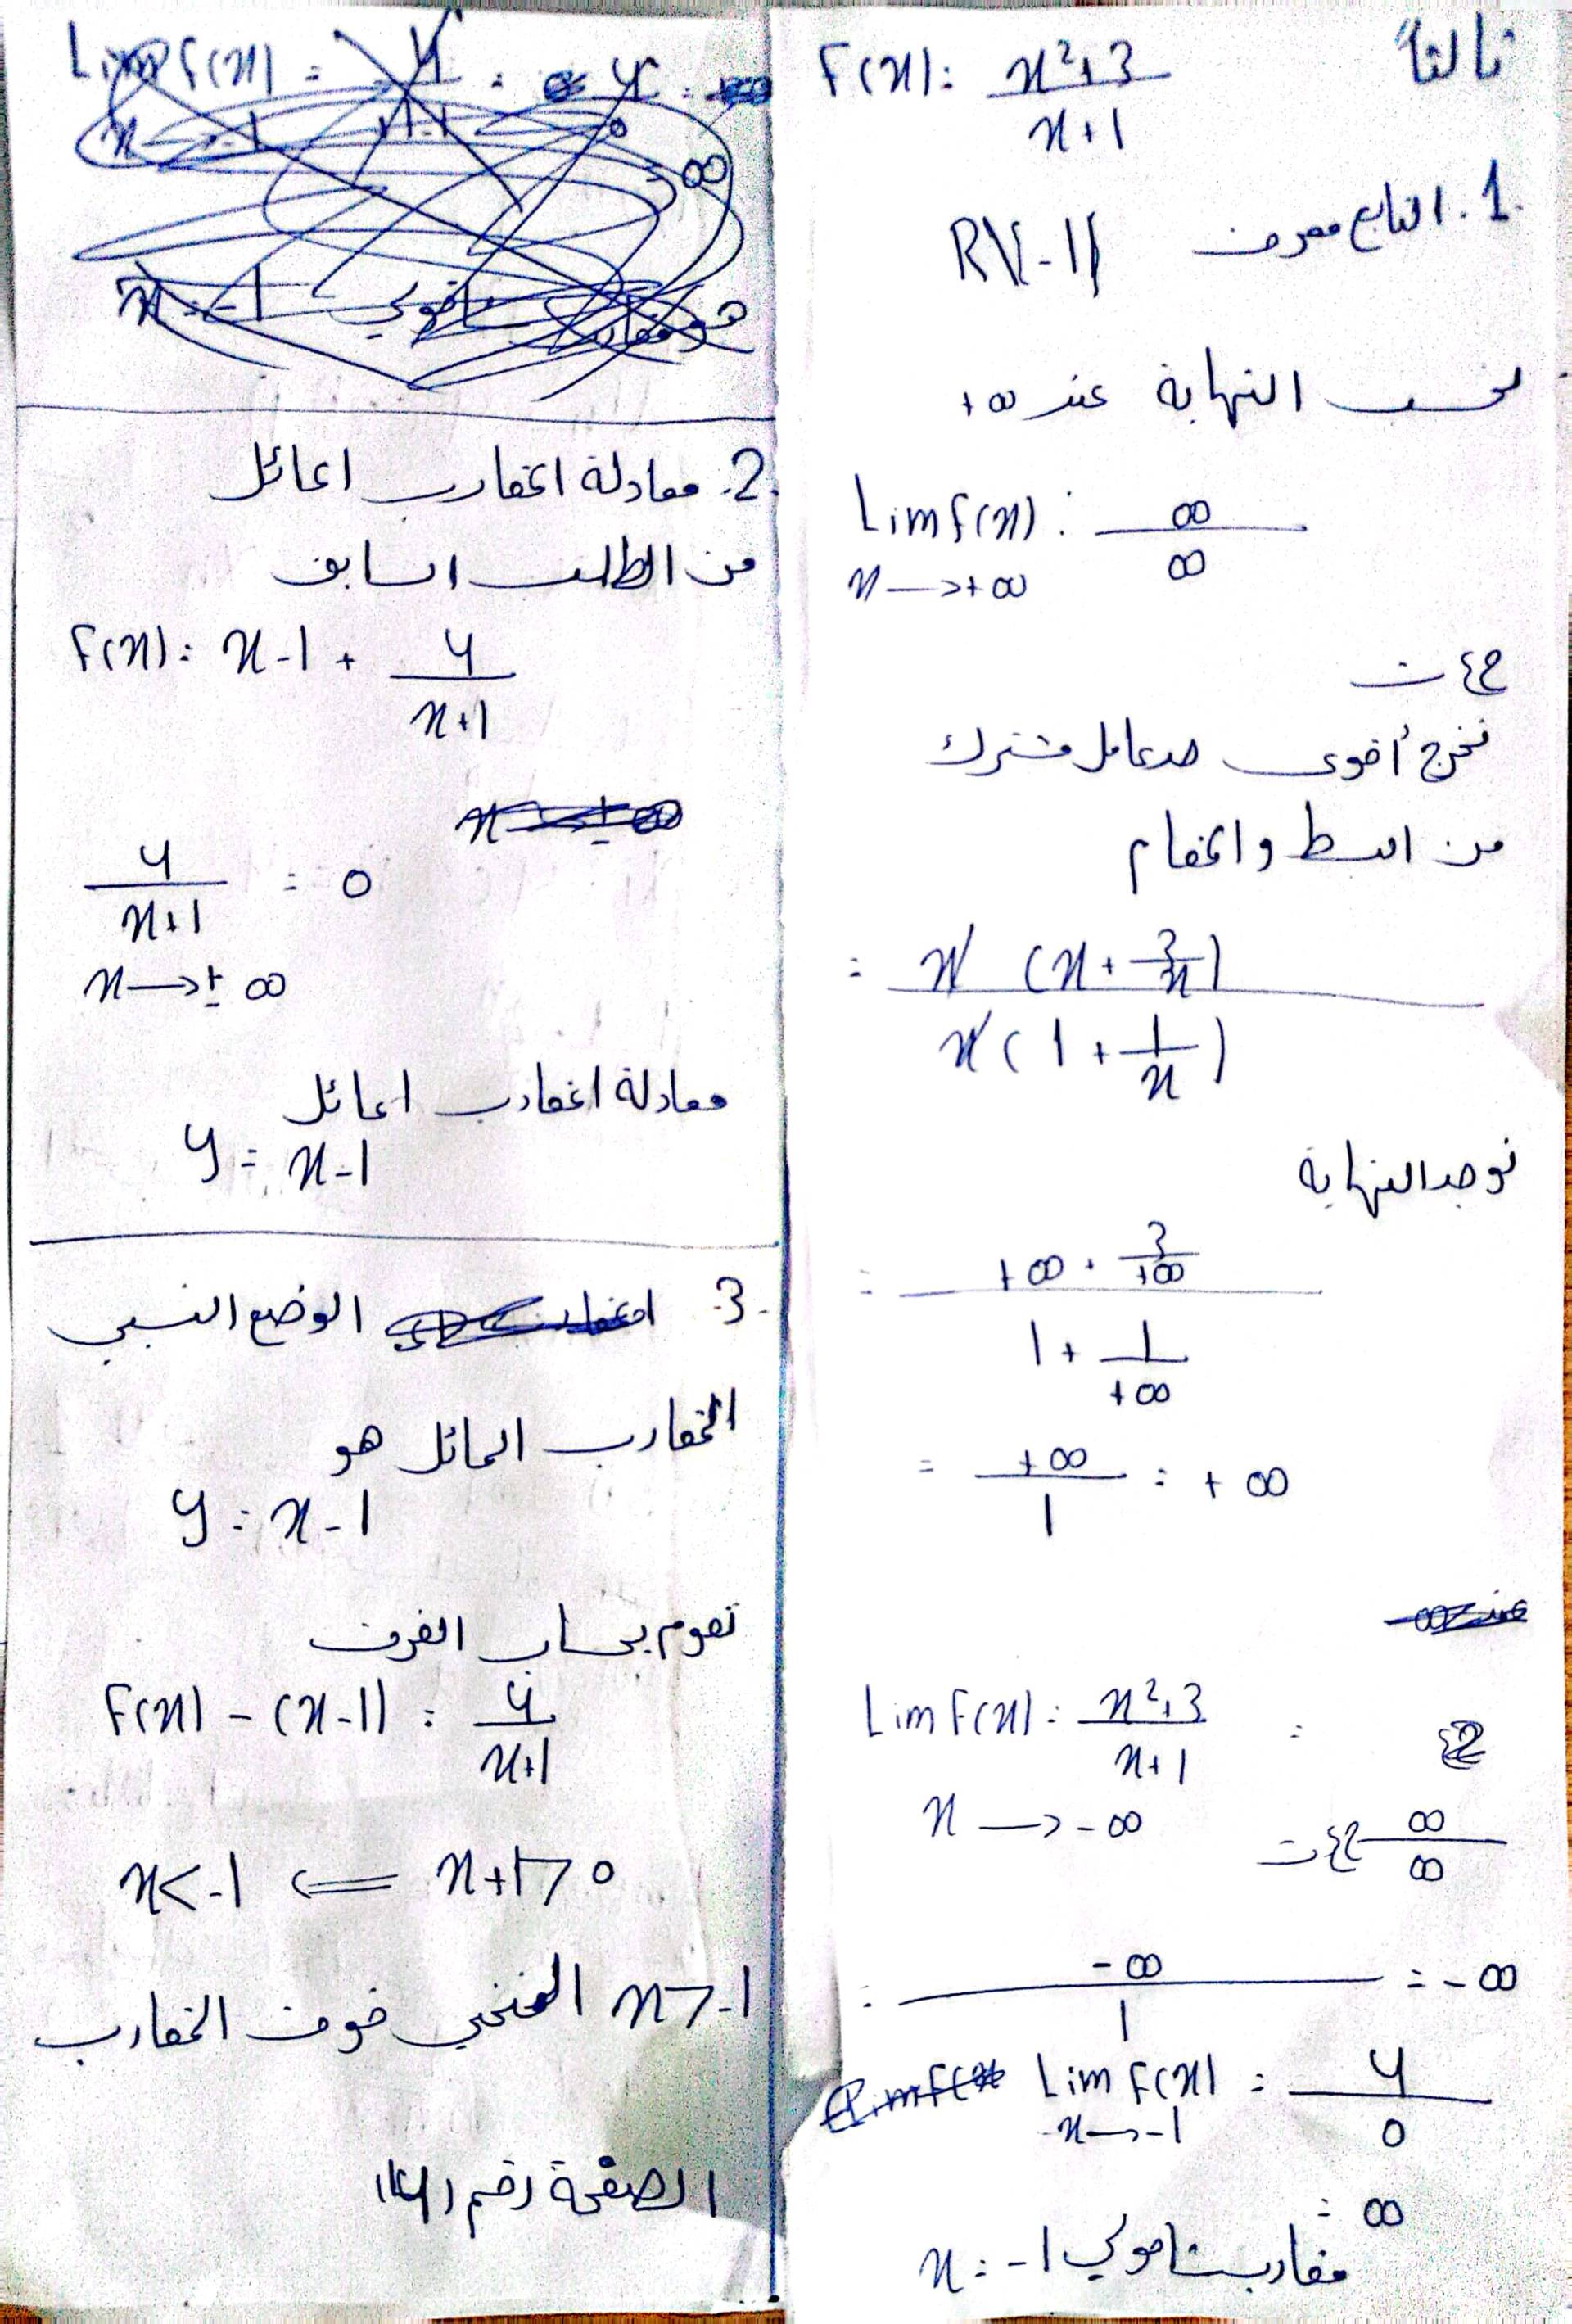 ثالثاً
F(x) = x²+3 / x+1
1. التابع معرف R\{-1}
نحسب النهاية عند +∞
Lim f(x) = ∞ / ∞
x → +∞
ح ع ت
نخرج أقوى حد عامل مشترك
من البسط والمقام
= x (x + 3/x) / x (1 + 1/x)
نوجد النهاية
= +∞ + 3/+∞ / 1 + 1/+∞
= +∞ / 1 = +∞
Lim F(x) = x²+3 / x+1 =
x → -∞
∞ / ∞ ح ع ت
= -∞ / 1 = -∞
Lim F(x) = 4 / 0
x → -1
= ∞
مقارب شاقولي x = -1
Lim f(x) = 4
x → -1
∞
x = -1 شاقولي
2. معادلة المقارب المائل
من الطلب السابق
F(x) = x-1 + 4 / x+1
4 / x+1 = 0
x → ± ∞
معادلة المقارب المائل
y = x-1
3. الوضع النسبي
المقارب المائل هو
y = x-1
نقوم بحساب الفرق
F(x) - (x-1) = 4 / x+1
x < -1 ⇐ x+1 > 0
x > -1 المنحني فوق المقارب
الصفحة رقم (4)